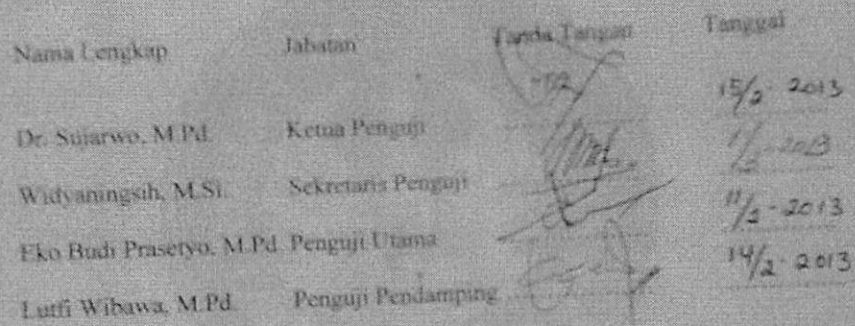 Nama Lengkap Jabatan Tanda Tangan Tanggal
Dr. Sujarwo, M.Pd. Ketua Penguji 15/2 - 2013
Widyaningsih, M.Si. Sekretaris Penguji 2013
Eko Budi Prasetyo, M.Pd. Penguji Utama 11/2 - 2013
Lutfi Wibawa, M.Pd. Penguji Pendamping 14/2 - 2013